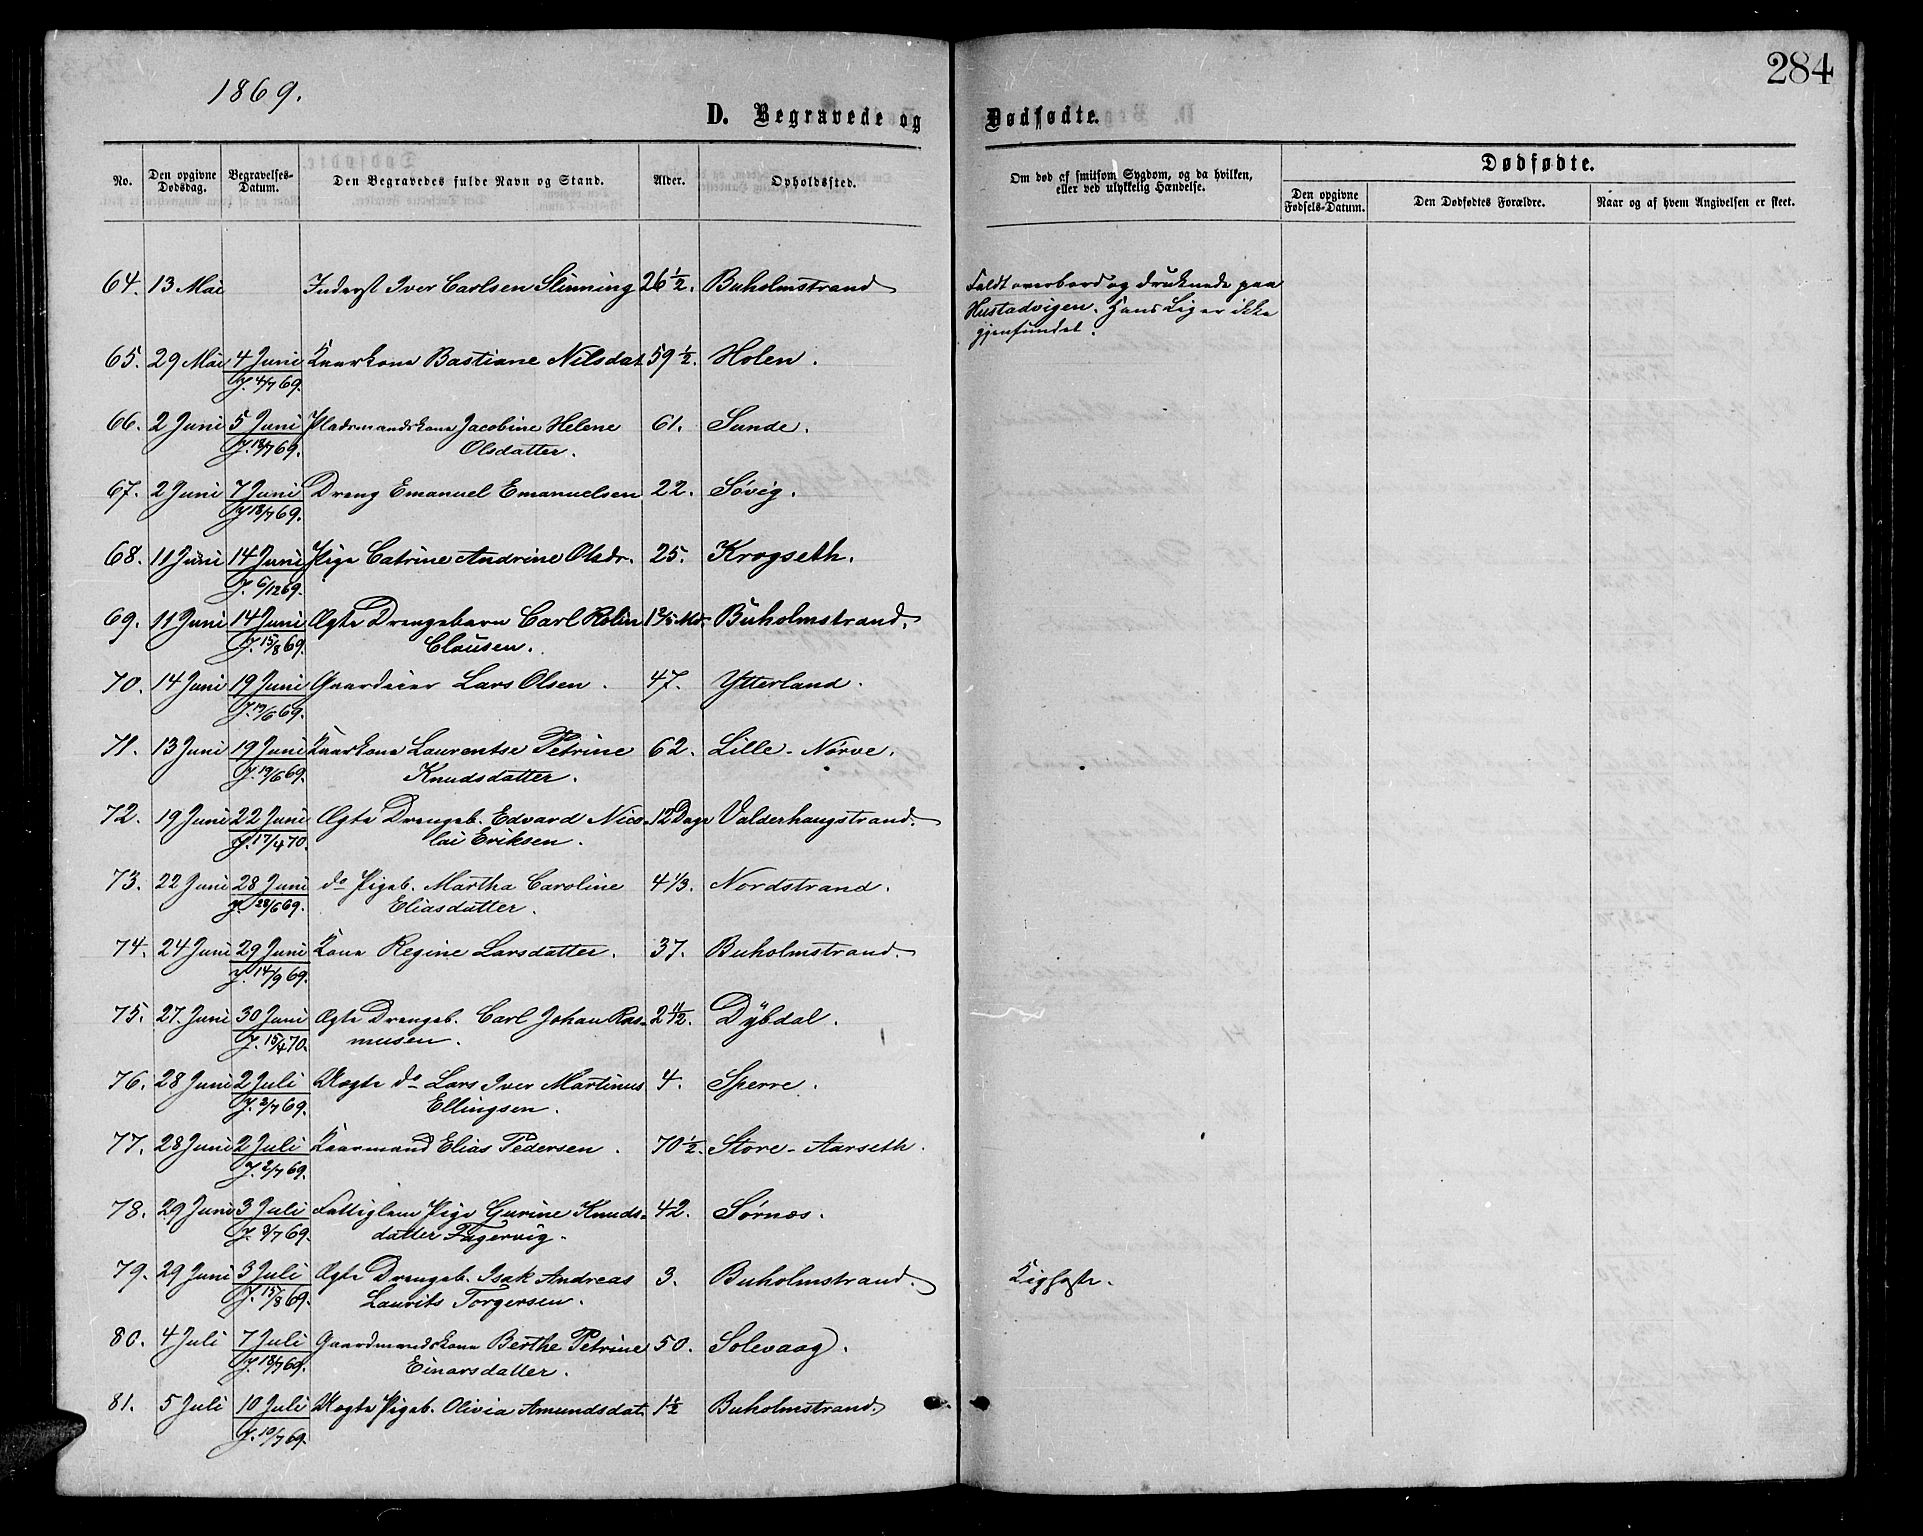 284
1869.
D. Begravede og Dødfødte.
Dødfødte.
No. Den opgivne Dødsdag. Begravelses-Datum. Den Begravedes fulde Navn og Stand. Alder. Opholdssted. Om død af smitsom Sygdom, og da hvilken, eller ved ulykkelig Hændelse. Den opgivne Fødsels-Datum. Den Dødfødtes Forældre. Naar og af hvem Angivelsen er skeet.
64. 13 Mai Inderst Iver Carlsen Slinning 26 1/2. Buholmstrand Faldt overbord og druknede paa
Hustadvigen. Hans Lig er ikke
gjenfundet.
65. 29 Mai 4 Juni Kaarkone Bastiane Nilsdat 59 1/2. Holen.
J. 4/7 69.
66. 2 Juni 5 Juni Pladsmandskone Jacobine Helene 61. Sunde.
J. 18/7 69. Olsdatter.
67. 2 Juni 7 Juni Dreng Emanuel Emanuelsen 22. Søvig.
J. 18/7 69.
68. 11 Juni 14 Juni Pige Catrine Andrine Olsdr. 25. Krogseth.
J. 6/12 69.
69. 11 Juni 14 Juni Ægte Drengebarn Carl Rolin Md. Buholmstrand.
J. 15/8 69. Clausen.
70. 14 Juni 19 Juni Gaardeier Lars Olsen. 47. Ytterland.
J. 19/6 69.
71. 13 Juni 19 Juni Kaarkone Laurentse Petrine 62. Lille-Nørve.
J. 19/6 69. Knudsdatter.
72. 19 Juni 22 Juni Ægte Drengeb. Edvard Nico- 12 Dage Valderhaugstrand.
J. 17/4 70. lai Eriksen.
73. 22 Juni 28 Juni do Pigeb. Martha Caroline 4 1/3. Nordstrand.
J. 28/6 69. Eliasdatter.
74. 24 Juni 29 Juni Kone Regine Larsdatter. 37. Buholmstrand.
J. 14/9 69.
75. 27. Juni 30 Juni Ægte Drengeb. Carl Johan Ras- 2 11/12. Dybdal.
J. 15/4 70. musen.
76. 28 Juni 2 Juli Uægte do Lars Iver Martinus 4. Sperre.
J. 2/7 69. Ellingsen.
77. 28 Juni 2 Juli Kaarmand Elias Pedersen. 70 1/2. Store-Aarseth.
J. 2/7 69.
78. 29 Juni 3 Juli Fattiglem Pige Gurine Knuds- 42. Sørnes.
J. 3/7 69. datter Fagervig.
79. 29 Juni 3 Juli Ægte Drengeb. Isak Andreas 3. Buholmstrand. Kighoste.
J. 15/8 69. Laurits Torgersen.
80. 4 Juli 7 Juli Gaardmandskone Berthe Petrine 50. Solevaag.
J. 18/7 69. Einarsdatter.
81. 5 Juli 10 Juli Uægte Pigeb. Olivia Amundsdat. 1 1/2 Buholmstrand.
J. 10/7 69.